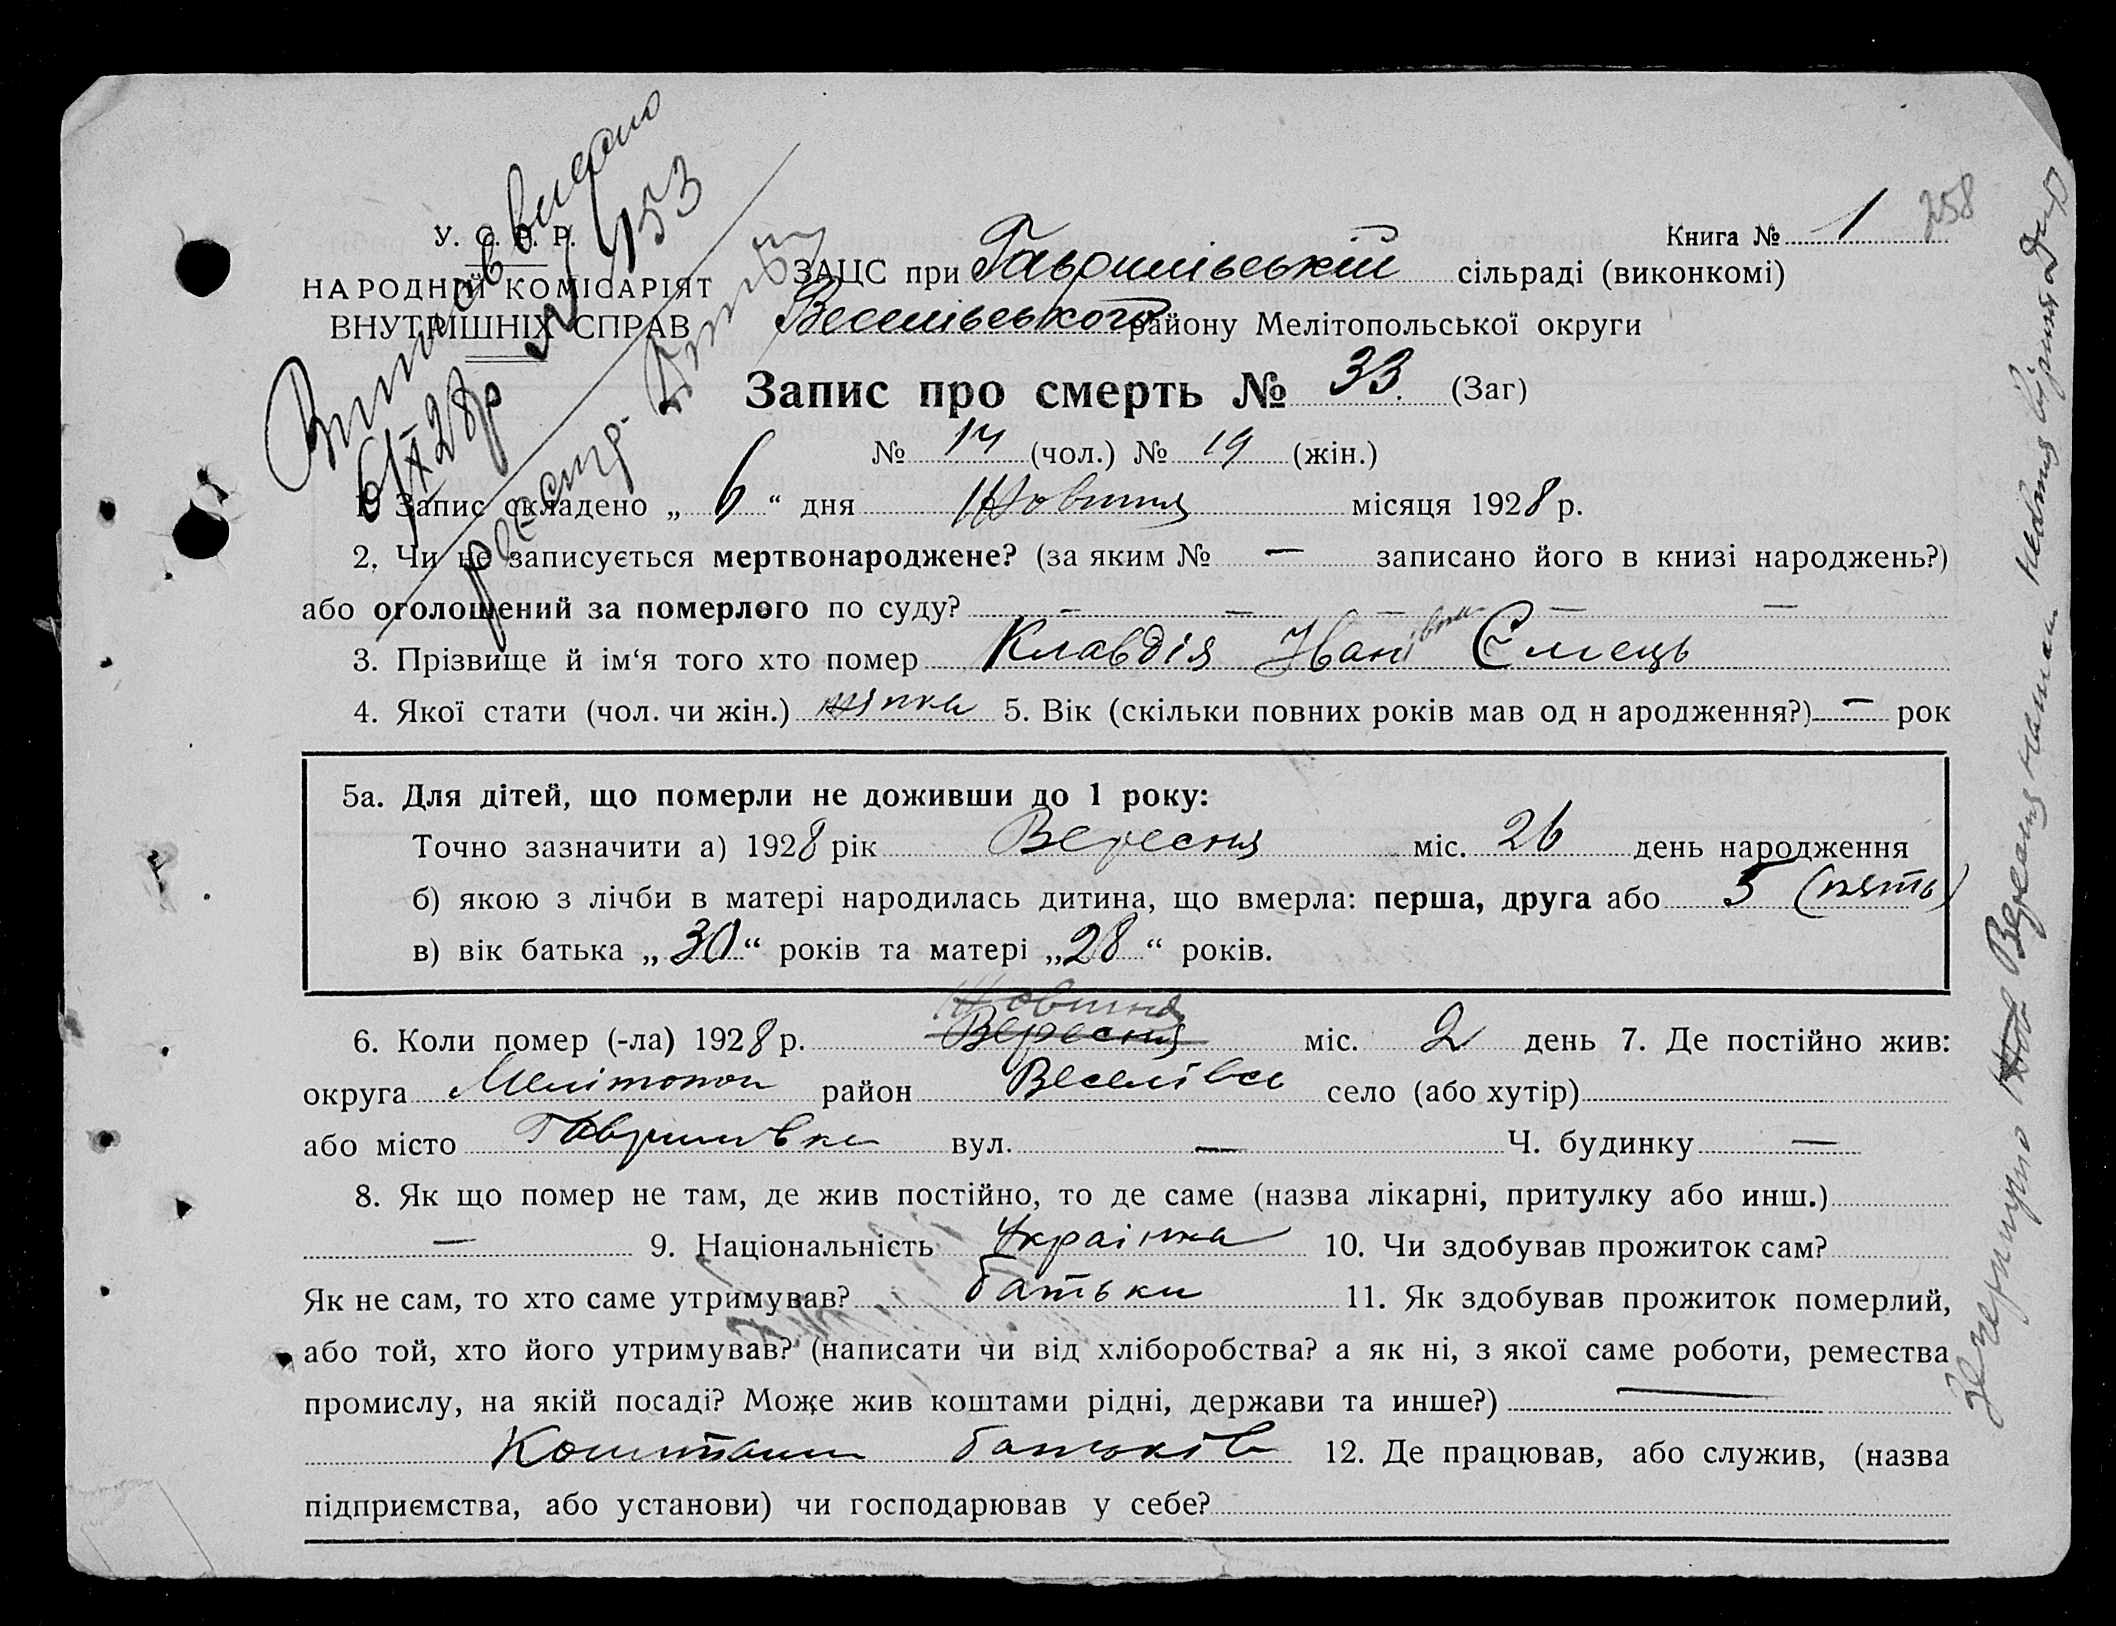 Витяг видано
6/X 28р № 153
реєстр.
258
У. С. Р. Р.
НАРОДНІЙ КОМІСАРІЯТ
ВНУТРІШНІХ СПРАВ
Книга № 1
ЗАЦС при Гаврилівській сільраді (виконкомі)
Веселівського району Мелітопольської округи
Запис про смерть № 33. (Заг)
№ 14 (чол.) № 19 (жін.)
1. Запис складено „ 6 “ дня Жовтня місяця 1928 р.
2. Чи не записується мертвонароджене? (за яким № — записано його в книзі народжень?)
або оголошений за померлого по суду? – – – – –
3. Прізвище й ім‘я того хто помер Клавдія Іванівна Ємець
4. Якої стати (чол. чи жін.) жінка 5. Вік (скільки повних років мав од н ародження?) — рок
5а. Для дітей, що померли не доживши до 1 року:
Точно зазначити а) 1928 рік Вересня міс. 26 день народження
б) якою з лічби в матері народилась дитина, що вмерла: перша, друга або 5 (пять)
в) вік батька „ 30 “ років та матері „ 28 “ років.
Жовтня
6. Коли помер (-ла) 1928 р. Вересня міс. 2 день 7. Де постійно жив:
округа Мелітопол район Веселівсь село (або хутір)
або місто Гаврилівка вул. — Ч. будинку —
8. Як що помер не там, де жив постійно, то де саме (назва лікарні, притулку або инш.)
— 9. Національність Українка 10. Чи здобував прожиток сам?
Як не сам, то хто саме утримував? батьки 11. Як здобував прожиток померлий,
або той, хто його утримував? (написати чи від хліборобства? а як ні, з якої саме роботи, ремества
промислу, на якій посаді? Може жив коштами рідні, держави та инше?) —
Коштами батьків 12. Де працював, або служив, (назва
підприємства, або установи) чи господарював у себе?
Зачеркнуто Вересня написано Жовтня вірити